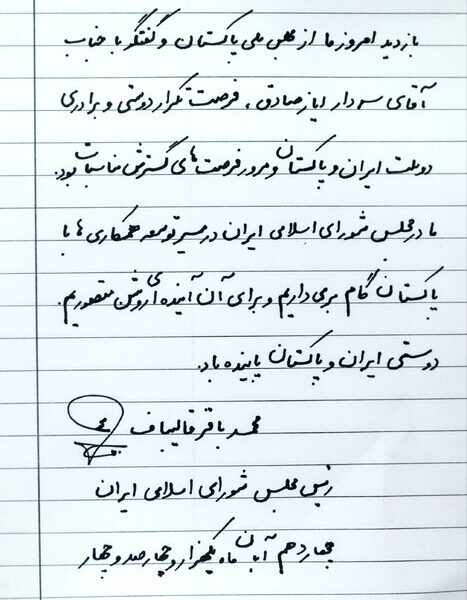 بازدید امروز ما از مجلس ملی پاکستان و گفتگو با جناب
آقای سردار ایاز صادق، فرصت تکرار دوستی و برادری
دو ملت ایران و پاکستان و مرور فرصت های گسترش مناسبات بود.
ما در مجلس شورای اسلامی ایران در مسیر توسعه همکاری ها با
پاکستان گام برمی داریم و برای آن آینده ای روشن متصوریم.
دوستی ایران و پاکستان پاینده باد.
محمد باقر قالیباف
رئیس مجلس شورای اسلامی ایران
چهاردهم آبان ماه یکهزار و چهارصد و چهار